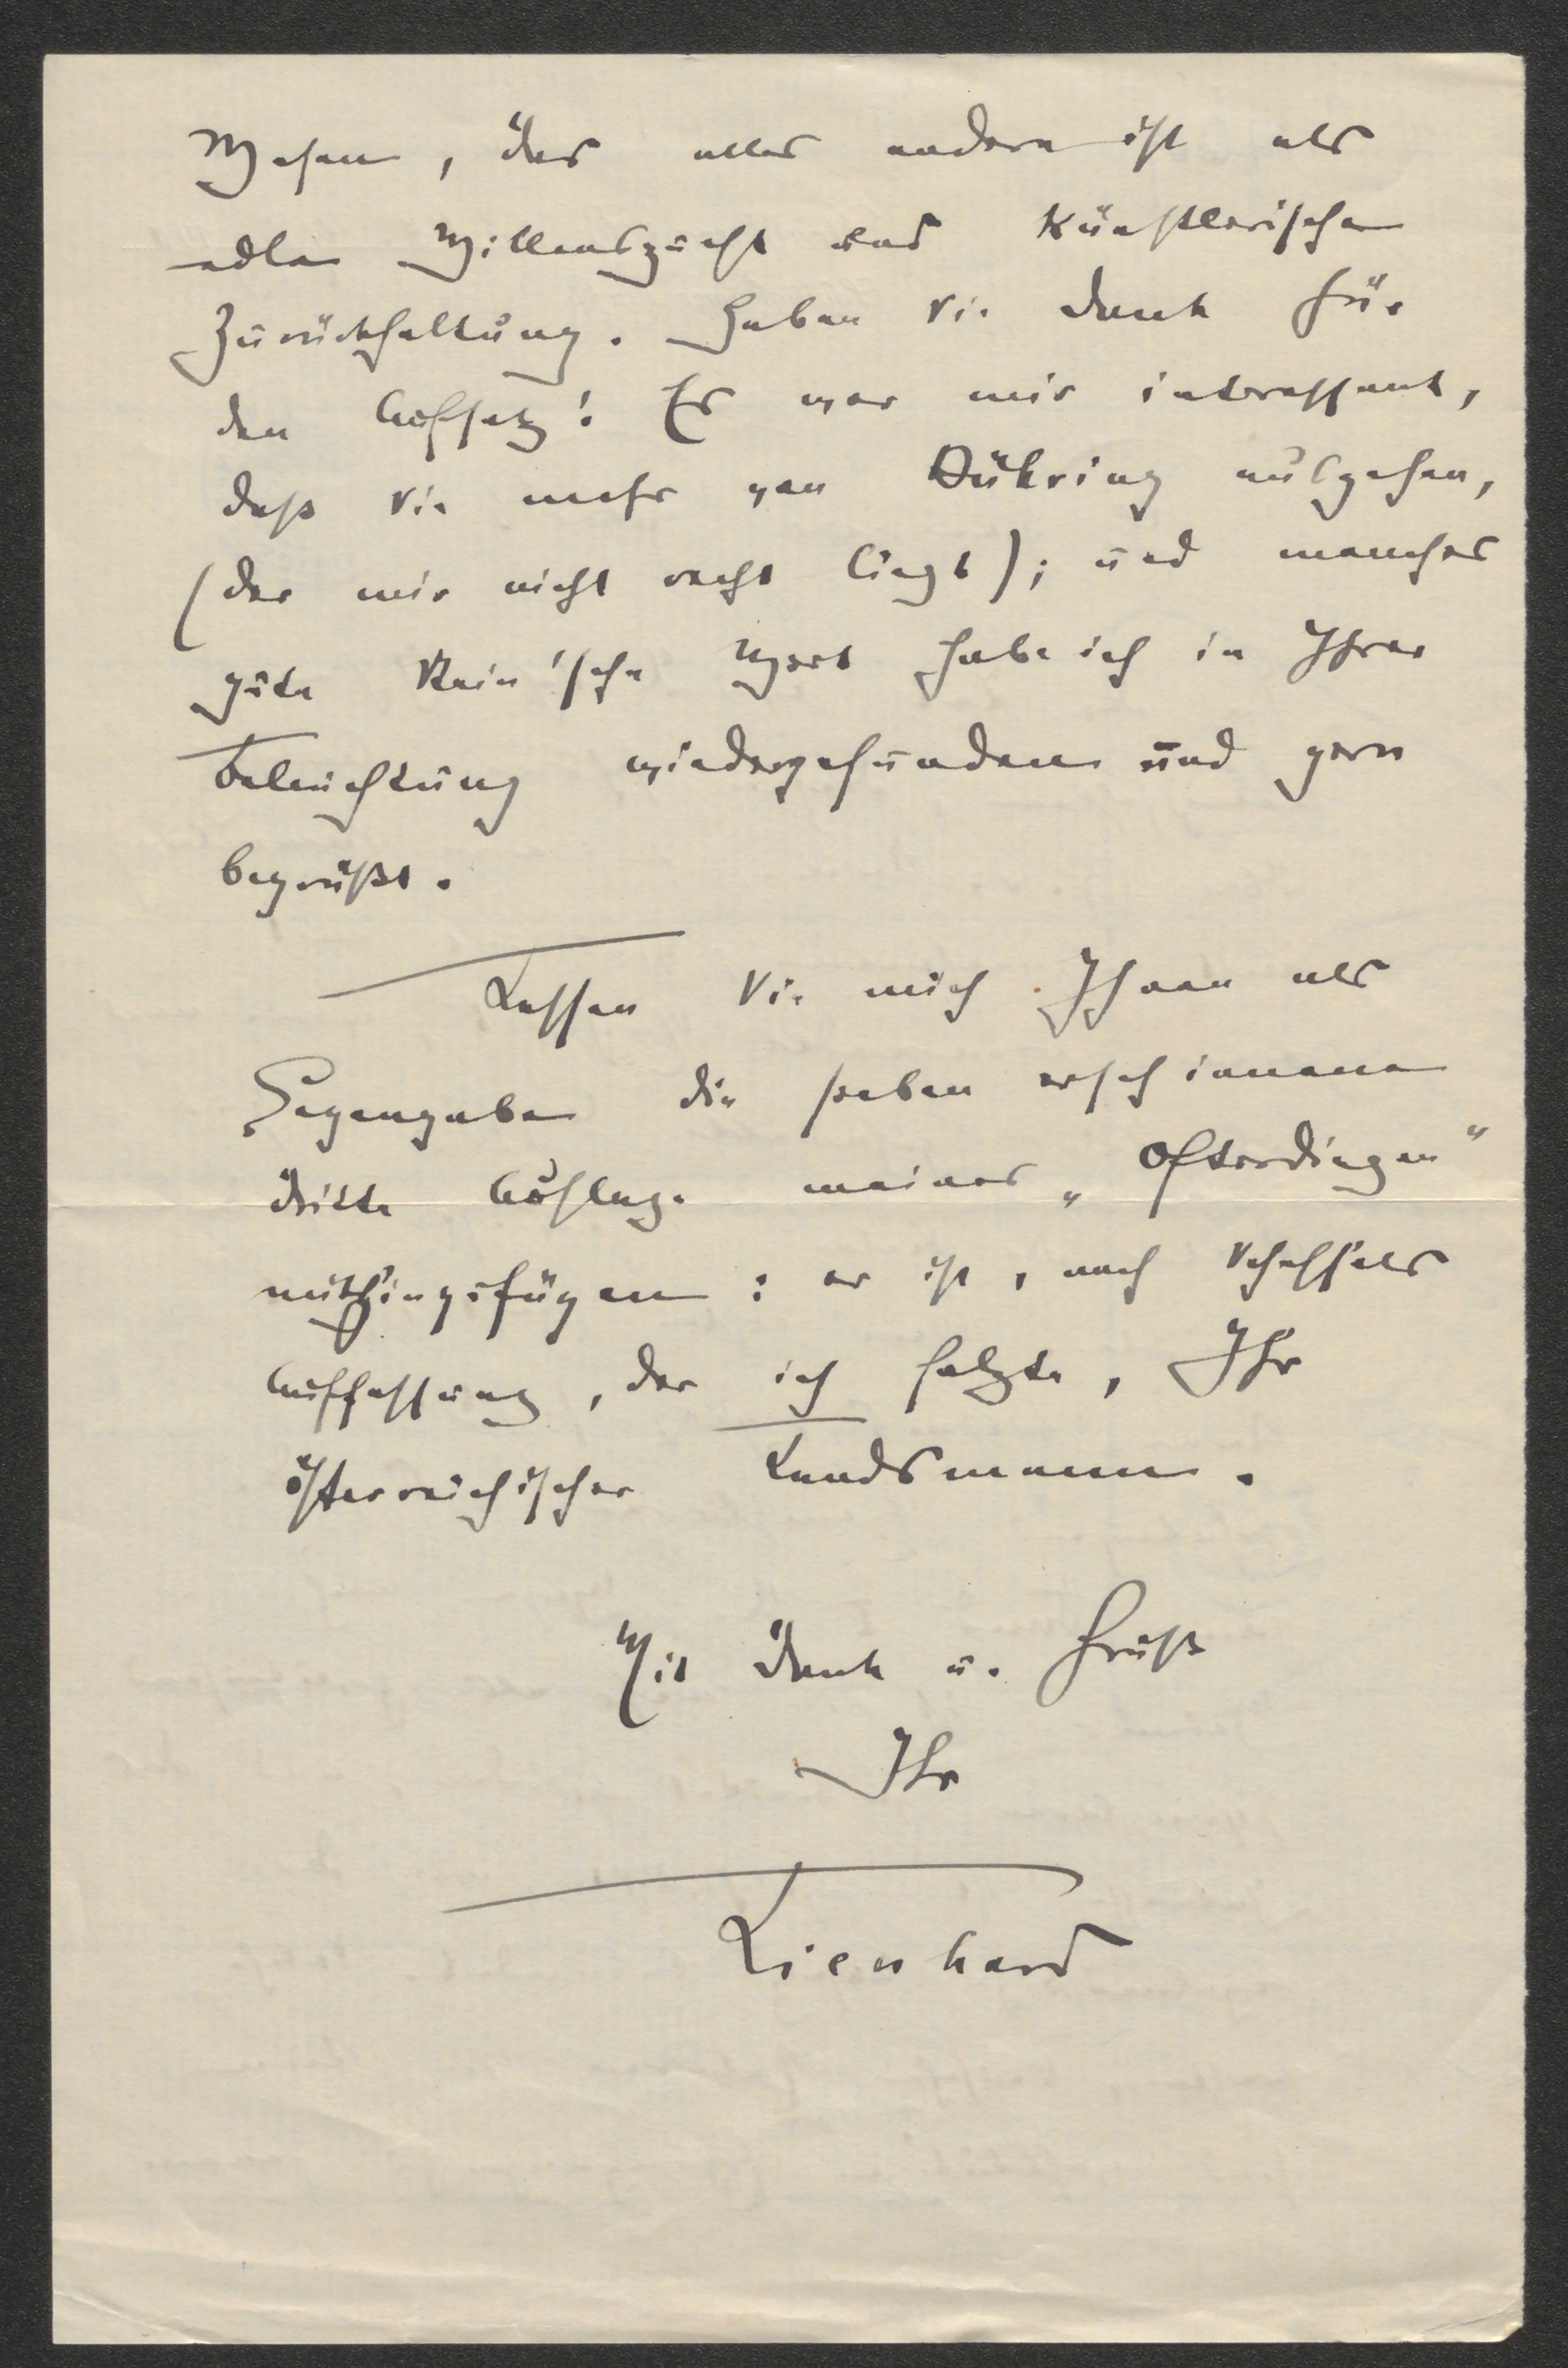 Wesen, das alles andere ist als
edle Willenszucht und künstlerische
Zurückhaltung. Haben Sie Dank für
den Aufsatz! Es war mir interessant,
daß Sie mehr von Dühring ausgehen,
(der mir nicht recht liegt); und manches
gute Stein'sche Wort habe ich in Ihrer
Beleuchtung wiedergefunden und gern
begrüßt.
Lassen Sie mich Ihnen als
Gegengabe die soeben erschienene
dritte Auflage meines „Ofterdingen"
mithinzufügen: er ist, nach Scheffels
Auffassung, der ich folgte, Ihr
österreichischer Landsmann.
Mit Dank u. Gruß
Ihr
Lienhard